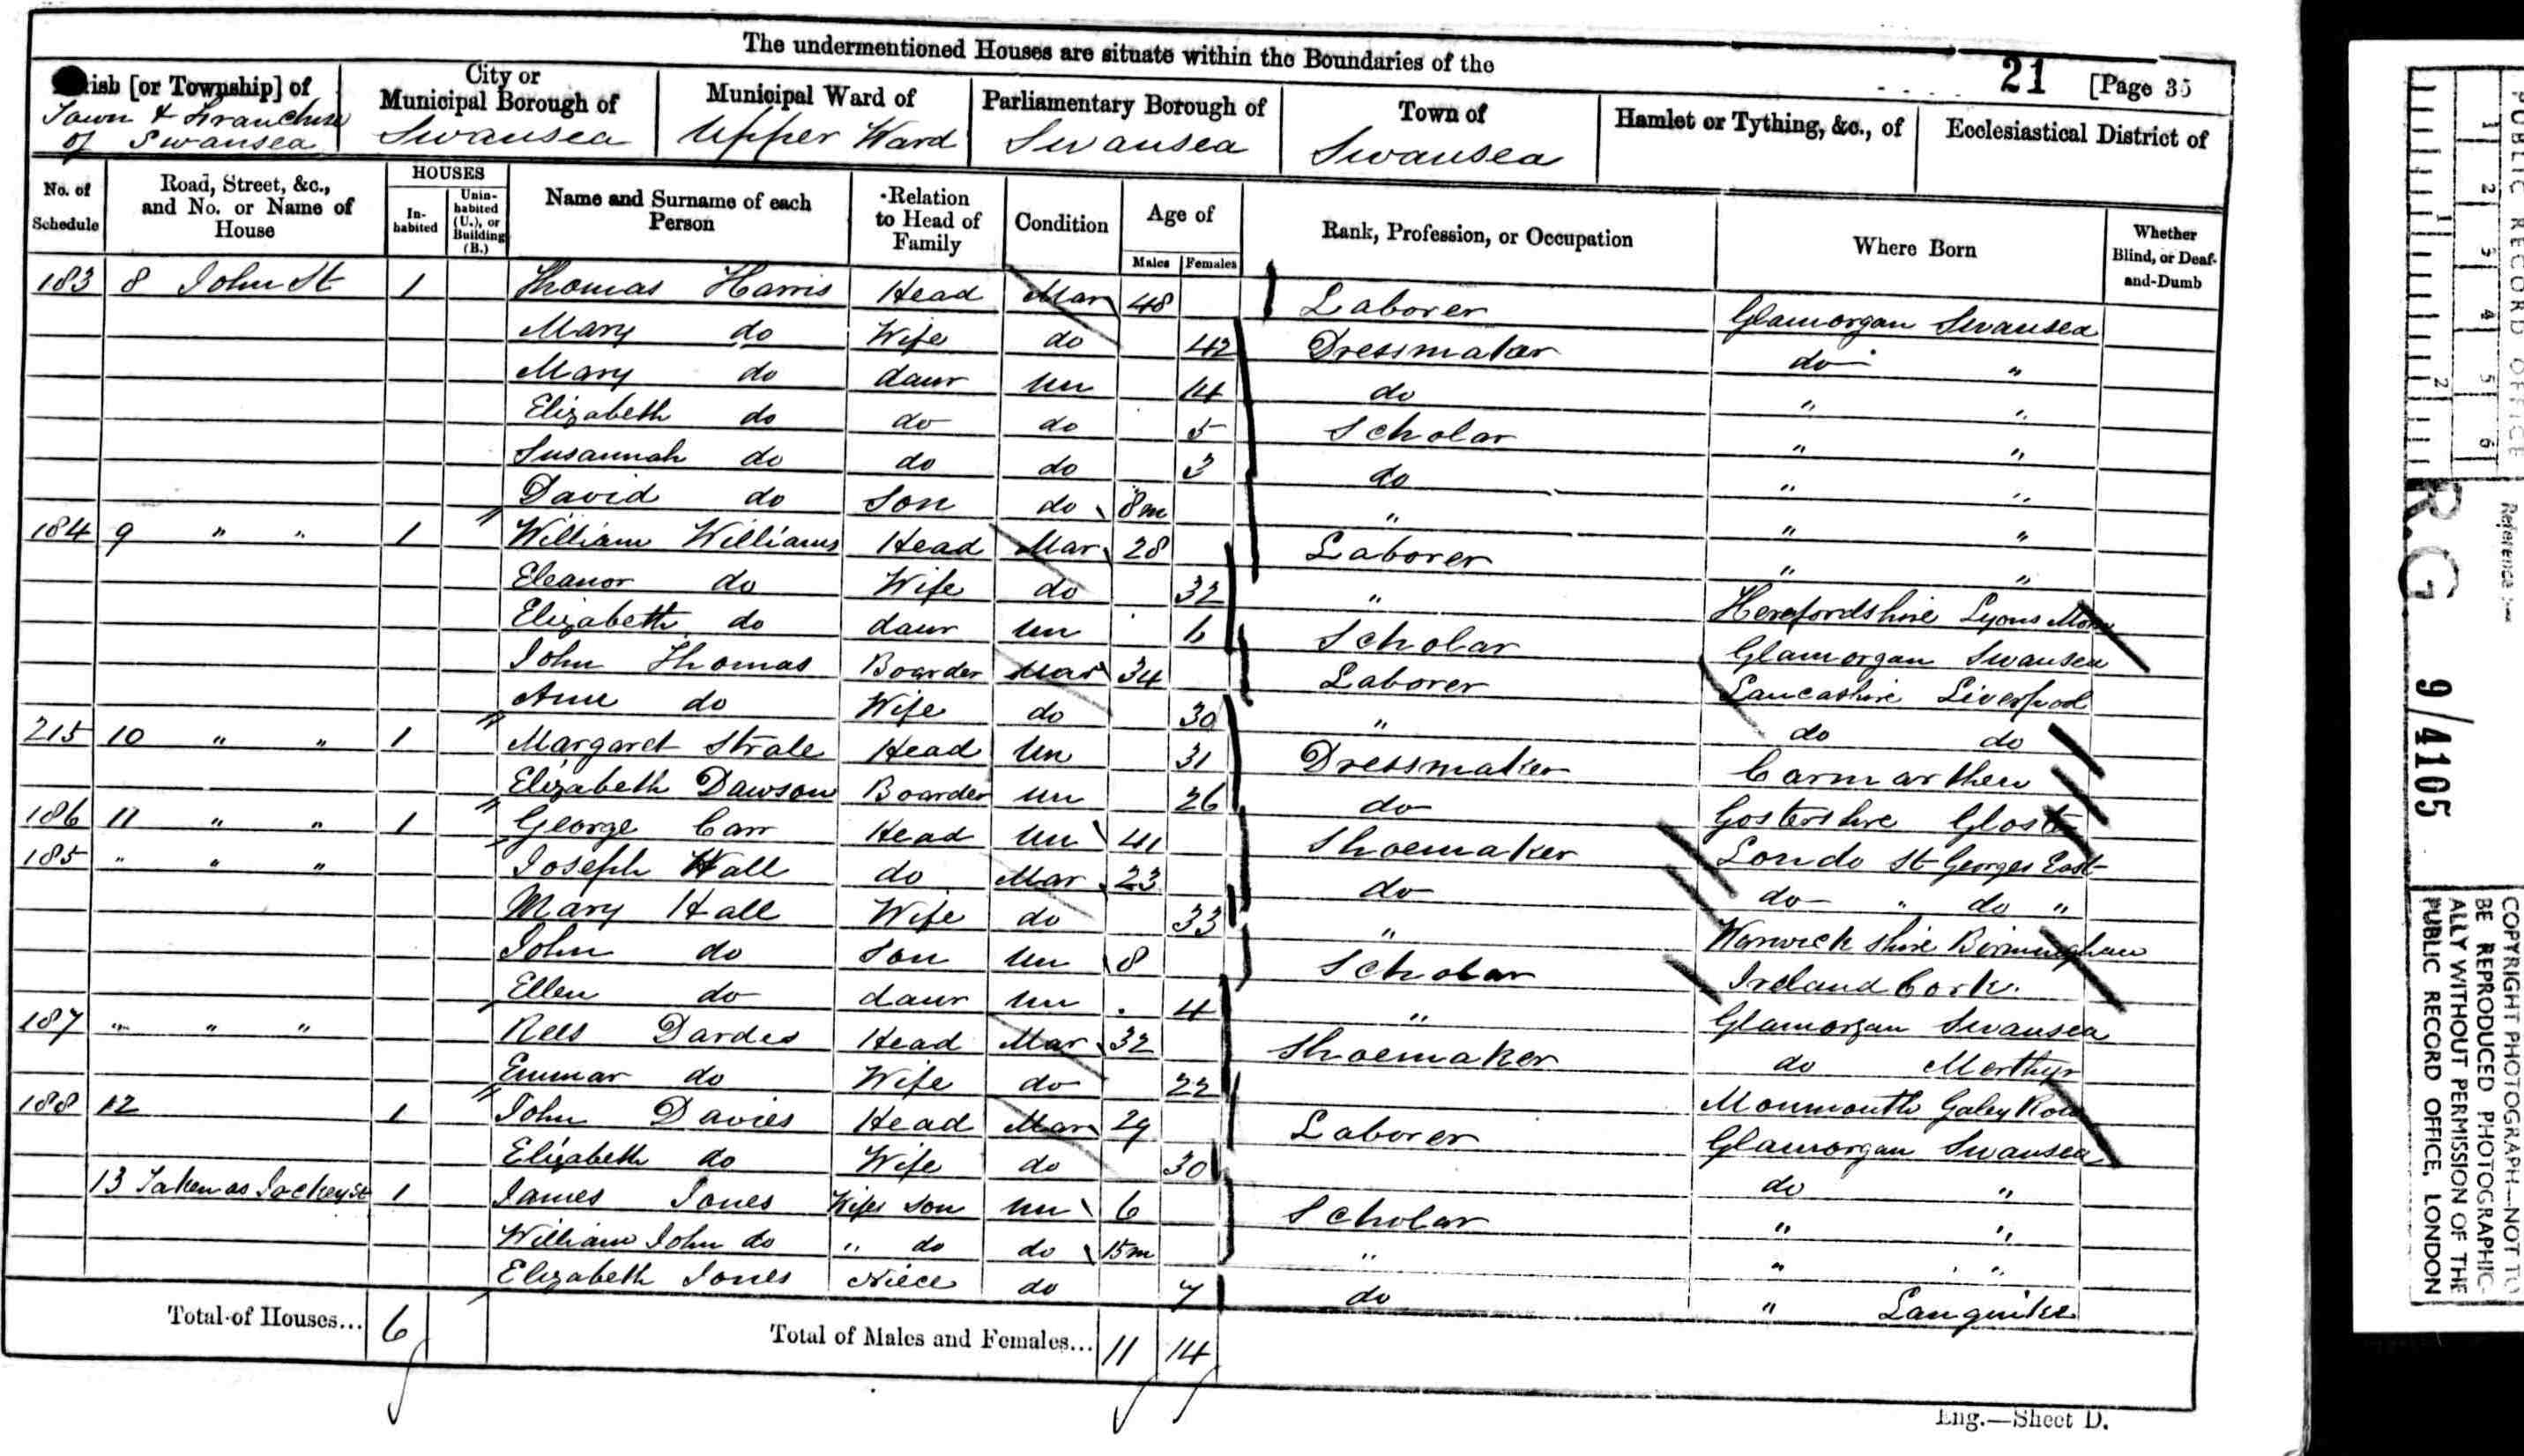 The undermentioned Houses are situate within the Boundaries of the
21 [Page 35
ish [or Township] of
Town & Franchise of Swansea
City or Municipal Borough of
Swansea
Municipal Ward of
Upper Ward
Parliamentary Borough of
Swansea
Town of
Swansea
Hamlet or Tything, &c., of
Ecclesiastical District of
No. of Schedule
Road, Street, &c., and No. or Name of House
HOUSES
In-habited
Unin-habited (U.), or Building (B.)
Name and Surname of each Person
Relation to Head of Family
Condition
Age of
Males Females
Rank, Profession, or Occupation
Where Born
Whether Blind, or Deaf-and-Dumb
183 8 John St 1 Thomas Harris Head Mar 48 Laborer Glamorgan Swansea
Mary do Wife do 42 Dressmaker do "
Mary do daur Un 14 do " "
Elizabeth do do do 5 Scholar " "
Susannah do do do 3 do " "
David do Son do 8m " " "
184 9 " " 1 William Williams Head Mar 28 Laborer " "
Eleanor do Wife do 32 " Herefordshire Lyons
Elizabeth do daur Un 6 Scholar Glamorgan Swansea
John Thomas Boarder Mar 34 Laborer Lancashire Liverpool
Ann do Wife do 30 " do do
215 10 " " 1 Margaret Strale Head Un 31 Dressmaker Carmarthen
Elizabeth Dawson Boarder Un 26 do Gostershire Glost
186 11 " " 1 George Carr Head Un 41 Shoemaker Londo St Georges East
185 " " " Joseph Hall do Mar 23 do do " do "
Mary Hall Wife do 33 " Warwick shire Birmingham
John do Son Un 8 Scholar Ireland Cork
Ellen do daur Un 4 " Glamorgan Swansea
187 " " " Rees Dardes Head Mar 32 Shoemaker do Merthyr
Emmar do Wife do 22 Monmouth
188 12 1 John Davies Head Mar 29 Laborer Glamorgan Swansea
Elizabeth do Wife do 30 do "
13 Taken as Jockey St 1 James Jones Wifes Son Un 6 Scholar " "
William John do " do do 15m " " "
Elizabeth Jones Niece do 7 do "
Total of Houses... 6 Total of Males and Females... 11 14
Eng.—Sheet D.
PUBLIC RECORD OFFICE
1 2 3 4 5 6
1 2
Reference :—
R.G 9/4105
COPYRIGHT PHOTOGRAPH—NOT TO
BE REPRODUCED PHOTOGRAPHIC-
ALLY WITHOUT PERMISSION OF THE
PUBLIC RECORD OFFICE, LONDON